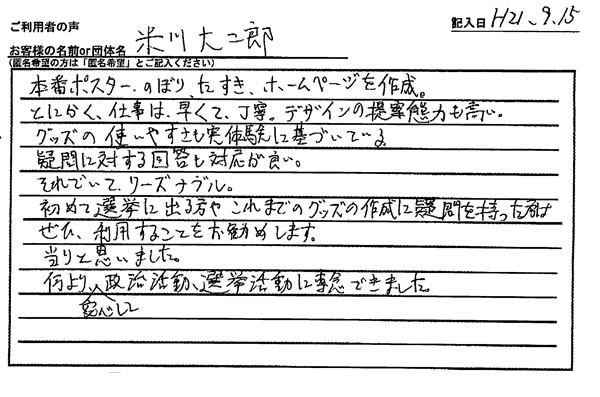 ご利用者の声
記入日 H21.9.15
お客様の名前or団体名 米川大二郎
(匿名希望の方は「匿名希望」とご記入ください)
本番ポスター、のぼり、たすき、ホームページを作成。
とにかく、仕事は、早くて、丁寧。デザインの提案能力も高い。
グッズの使いやすさも実体験に基づいている。
疑問に対する回答も対応が良い。
それでいて、リーズナブル。
初めて選挙に出る方やこれまでのグッズの作成に疑問を持った方は
ぜひ、利用することをお勧めします。
当りと思いました。
何より、政治活動、選挙活動に専念できました。
安心して